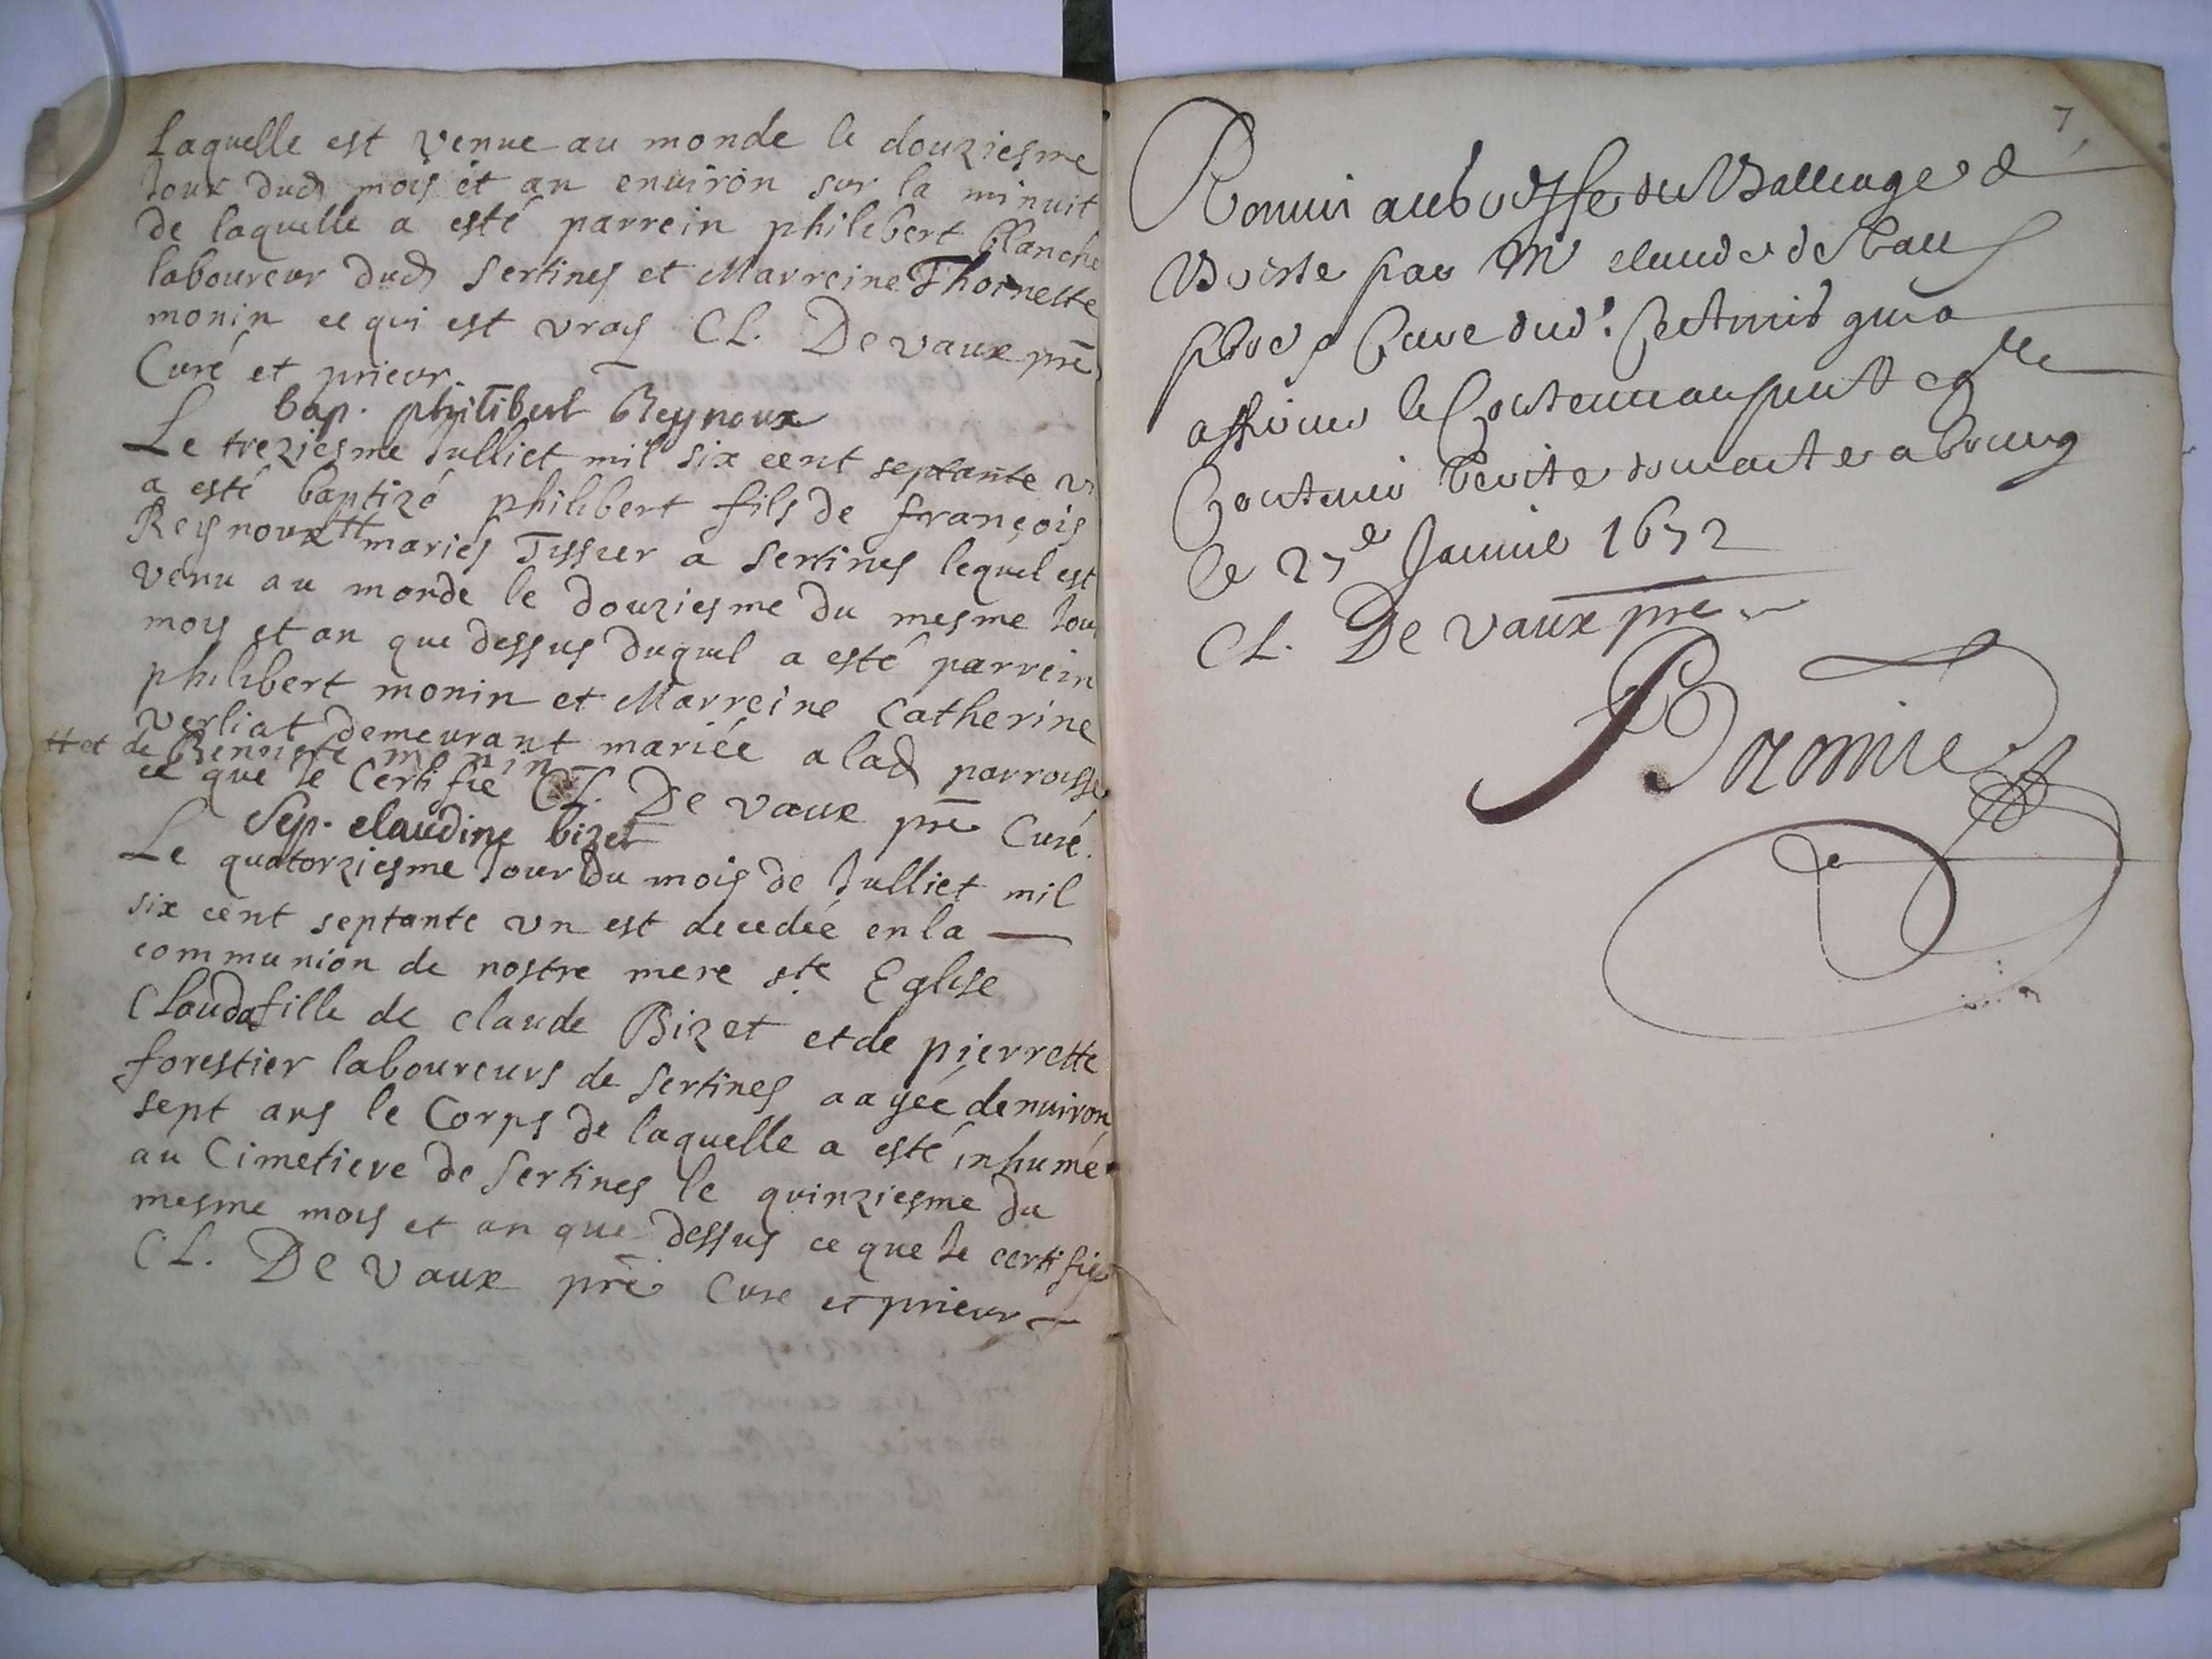 laquelle est venue au monde le douziesme
Jour dud mois et an environ sur la minuit
de laquelle a esté parrein philibert Blanche
laboureur dud Sertines et Marreine Thoinette
monin ce qui est vray CL. De vaux pre
Curé et prieur.
bap. philibert Reynoux
Le treziesme Julliet mil six cent septante v
a esté baptizé philibert fils de françois
Reynoux ++ maries Tissier a Sertines lequel est
venu au monde le douziesme du mesme Jour
mois et an que dessus duquel a esté parrein
philibert monin et Marreine Catherine
verliat demeurant mariée a lad parroisse
++ et de Benoiste monin
ce que Je Certifie CL. De vaux pre Curé.
Sep. claudine bizet
Le quatorziesme Jour du mois de Julliet mil
six cent septante vn est decedée en la
communion de nostre mere ste Eglise
Clauda fille de claude Bizet et de pierrette
forestier laboureurs de Sertines aagée denuiron
sept ans le Corps de laquelle a esté inhumé
au Cimetiere de Sertines le quinziesme du
mesme mois et an que dessus ce que Je certifie
CL. De vaux pre Cure et prieur
7
Remis au Greffe du Balliage de
par Mr claude de Vaux
Curé dud. Sertines qui a
affirmé le Contenu
Contenir verité a bourg
le 27e Januie 1672
CL. De vaux pre